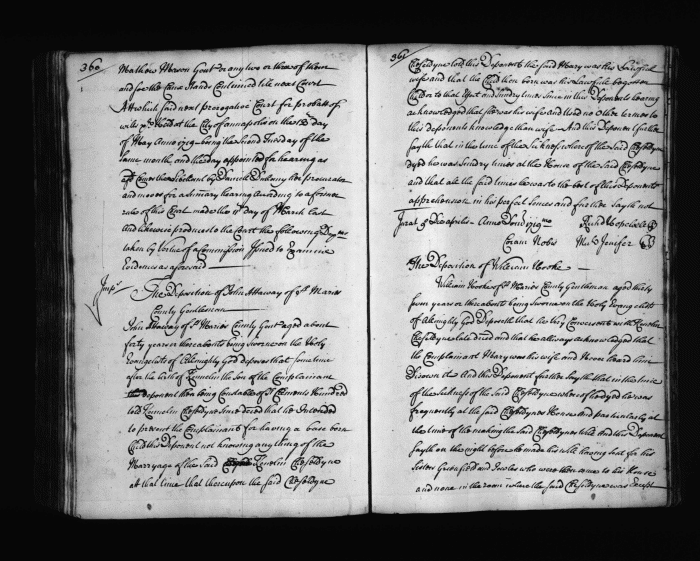 360
Mathew Mason Gent or any two or three of them
and for the Cause Stands Continued till next Court
At which said next prerogative Court for probate of
wills &c. Held at the City of annapolis on the 12 day
of May Anno 1719 being the second Tuesday of the
same month, and the day appointed for hearing
Comes the by Daniel Dulany her procurator
and moves for a Sumary hearing according to a former
rule of this Court made the day of March Last
And likewise produces to the Court the following Depns
taken by Vertue of a Commission Issued to Examine
Evidences as aforesaid
Imps
The Deposition of John Attaway of St Maries
County Gentleman
John Attaway of St Maries County Gent aged about
forty years or thereabouts being Sworne on the Holy
Evangelists of Almighty God deposes that some time
after the birth of Kenelm the Son of the Complainant
the deponent then being Constable of St Clements Hundred
told Kenelm Cheseldyne since dead that he Intended
to present the Complainant for having a base born
Child this Deponent not knowing any thing of the
Marryage of the said Kenelm Cheseldyne
at that time that thereupon the said Cheseldyne
361
Cheseldyne told this Deponent the said Mary was his Lawfull
wife and that the Child then born was his Lawfull begotten
Child or to that Effect and sundry times since in this Deponents hearing
acknowledged that she was his wife and had no other termes to
this deponents knowledge than wife And this Deponent further
sayth that in the time of the sickness whereof the said Cheseldyne
dyed he was sundry times at the House of the said Cheseldyne
and that at the said times he was to the best of this Deponents
apprehension in his perfect senses and further sayth not
Jurat 9 Die Aprilis Anno Dom 1719
Richd Hopewell
Coram Nobis
Jenifer
The Deposition of William Hooke
William Hooke of St Maries County Gentleman aged thirty
years or thereabouts being Sworne on the Holy Evangelists
of Almighty God Deposeth that he was very Conversant with Kenelm
Cheseldyne late dec'd and that he always acknowledged that
the Complainant Mary was his wife and never heard him
And this Deponent further sayth that in the time
of the sickness of the said Cheseldyne whereof he dyed he was
frequently at the said Cheseldynes House and particularly at
the time of the making the said Cheseldynes will And this Deponent
sayth on the night before he made his will having sent for his
Sister Greenfield and who were then come to his House
and none in the room where the said Cheseldyne was Except